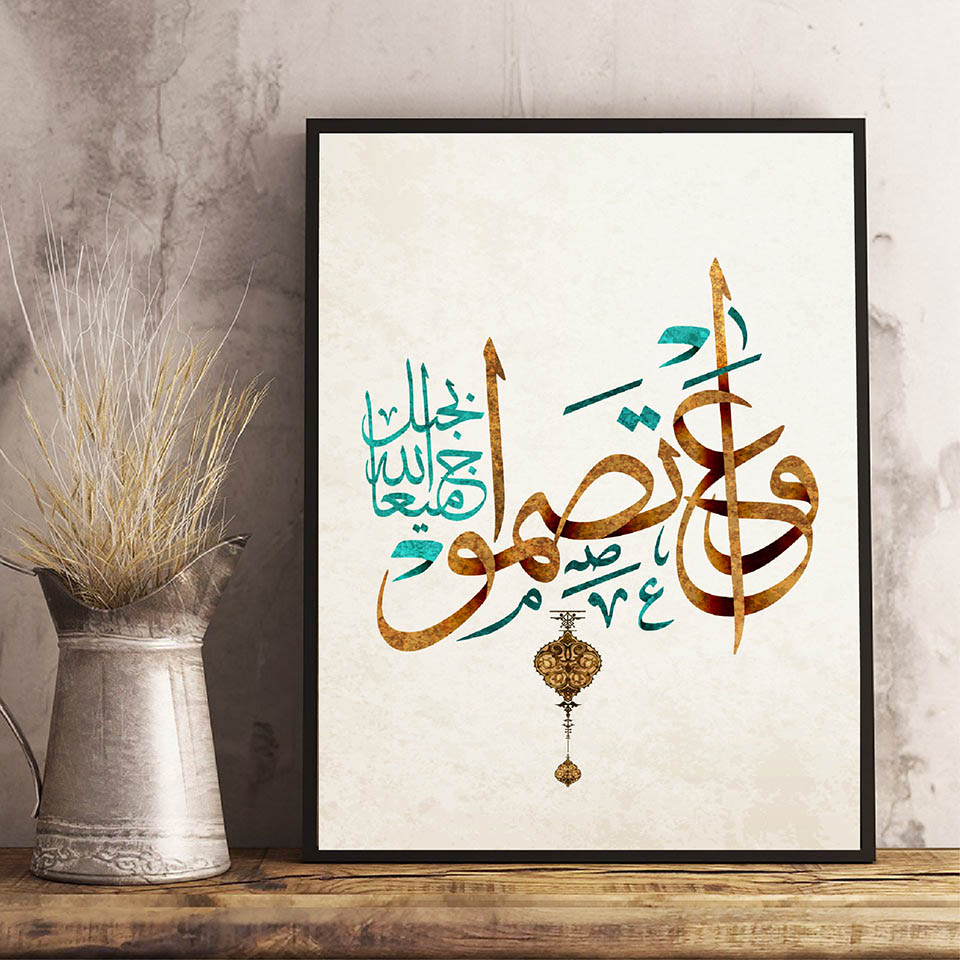 واعتصموا
بحبل
الله
جميعا